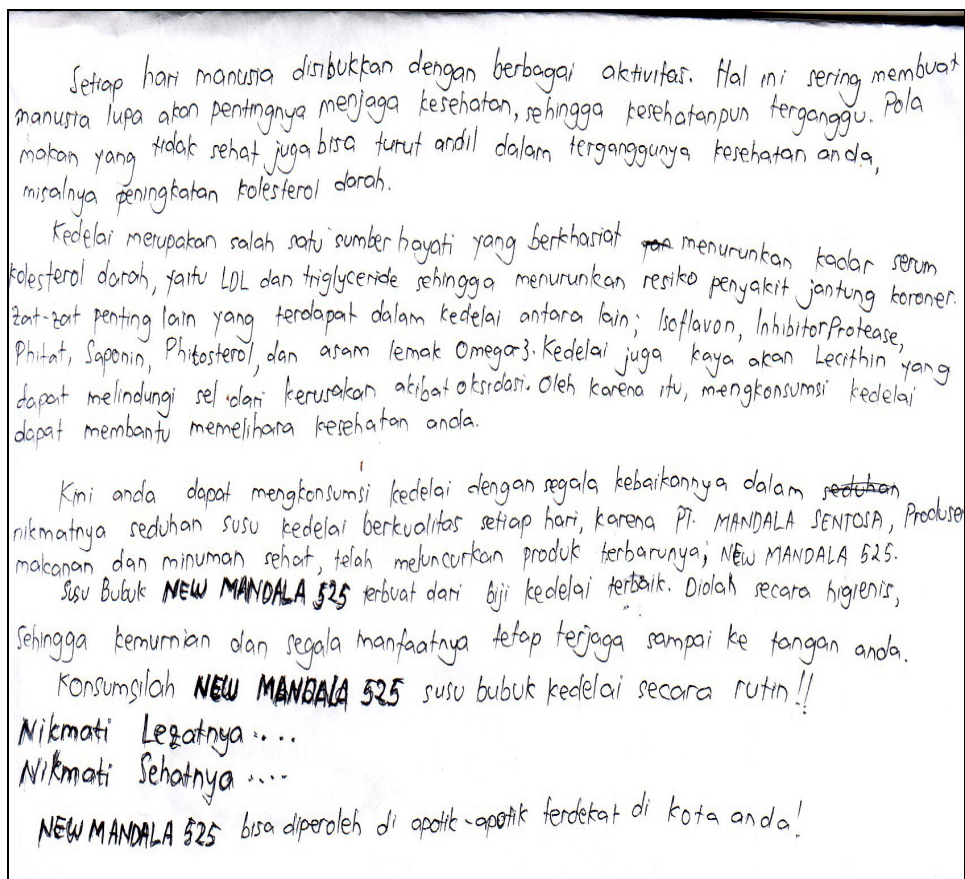 Setiap hari manusia disibukkan dengan berbagai aktivitas. Hal ini sering membuat
manusia lupa akan pentingnya menjaga kesehatan, sehingga kesehatanpun terganggu. Pola
makan yang tidak sehat juga bisa turut andil dalam terganggunya kesehatan anda,
misalnya peningkatan kolesterol darah.
Kedelai merupakan salah satu sumber hayati yang berkhasiat menurunkan kadar serum
kolesterol darah, yaitu LDL dan triglyceride sehingga menurunkan resiko penyakit jantung koroner.
Zat-zat penting lain yang terdapat dalam kedelai antara lain; Isoflavon, Inhibitor Protease,
Phitat, Saponin, Phitosterol, dan asam lemak Omega-3. Kedelai juga kaya akan Lecithin yang
dapat melindungi sel dari kerusakan akibat oksidasi. Oleh karena itu, mengkonsumsi kedelai
dapat membantu memelihara kesehatan anda.
Kini anda dapat mengkonsumsi kedelai dengan segala kebaikannya dalam seduhan
nikmatnya seduhan susu kedelai berkualitas setiap hari, karena PT. MANDALA SENTOSA, Produsen
makanan dan minuman sehat, telah meluncurkan produk terbarunya; NEW MANDALA 525.
Susu Bubuk NEW MANDALA 525 terbuat dari biji kedelai terbaik. Diolah secara higienis,
Sehingga kemurnian dan segala manfaatnya tetap terjaga sampai ke tangan anda.
Konsumsilah NEW MANDALA 525 susu bubuk kedelai secara rutin!!
Nikmati Lezatnya ....
Nikmati Sehatnya ....
NEW MANDALA 525 bisa diperoleh di apotik-apotik terdekat di kota anda!